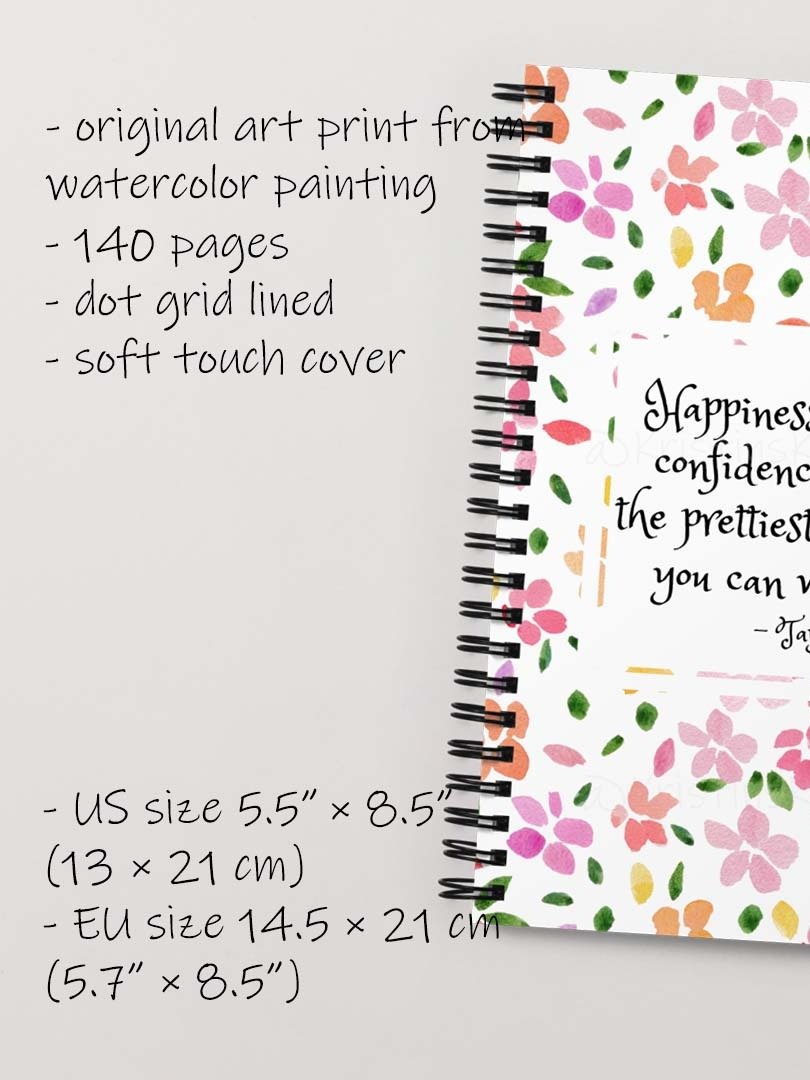 - original art print from
watercolor painting
- 140 pages
- dot grid lined
- soft touch cover
Happiness
confidenc
the prettiest
you can w
- Tay
- US size 5.5" × 8.5"
(13 × 21 cm)
- EU size 14.5 × 21 cm
(5.7" × 8.5")